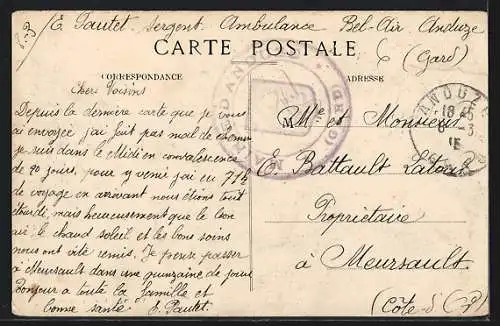 F.P. E. Pautet Sergent Ambulance Bel-Air Anduze
CARTE POSTALE (Gard)
CORRESPONDANCE
ADRESSE
Chers Voisins
Depuis la dernière carte que je vous
ai envoyée j'ai fait pas mal de chemin
je suis dans le Midi en convalescence
de 20 jours, pour y venir j'ai eu 71 h
de voyage en arrivant nous étions tout
étourdi, mais heureusement que le bon
air le chaud soleil et les bons soins
nous ont vite remis. Je pense passer
à Meursault dans une quinzaine de jours
Bonjour a toute la famille et
bonne santé E. Pautet.
Mme et Monsieur
E. Battault Latour
Propriétaire
à Meursault
(Côte-d'
ANDUZE
18 45